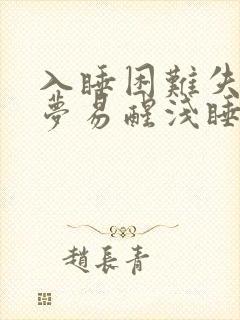 入睡困難失
夢易醒淺睡
趙長青